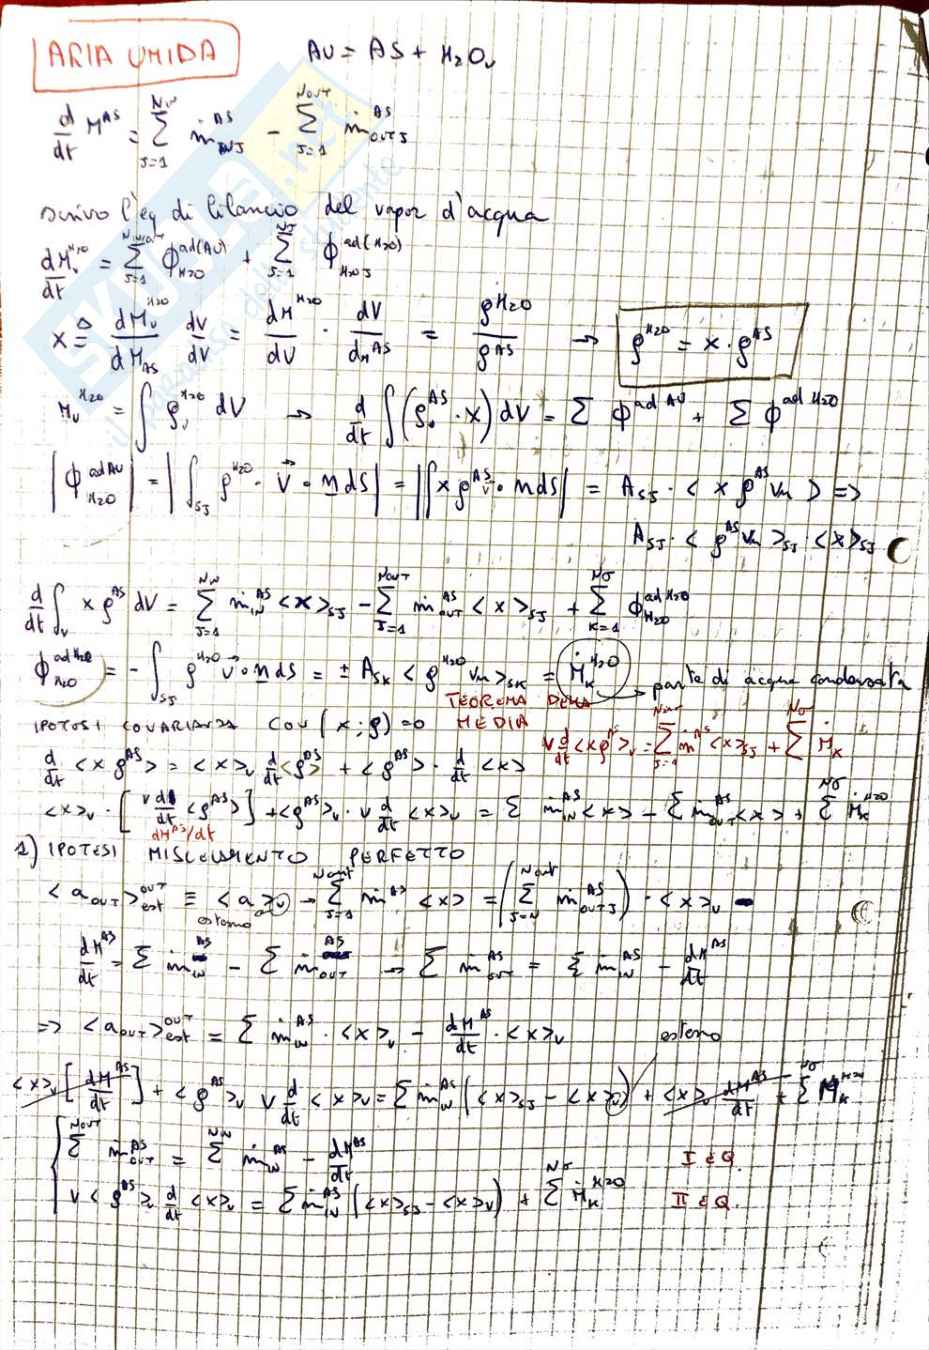 ARIA UMIDA AU = AS + H₂Oᵥ
d/dt M^AS = Σ_{J=1}^{N_IN} ṁ^AS_{IN J} − Σ_{J=1}^{N_OUT} ṁ^AS_{OUT J}
scrivo l'eq di bilancio del vapor d'acqua
dMᵥ^{H₂O}/dt = Σ_{J=1}^{N_{IN,OUT}} ϕ_{H₂O}^{ad(AU)} + Σ_{J=1} ϕ_{H₂O J}^{ad(H₂O)}
X ≜ dMᵥ^{H₂O}/dM_AS dV/dV = dM^{H₂O}/dV · dV/dM^AS = ρ^{H₂O}/ρ^AS → ρ^{H₂O} = x · ρ^AS
Mᵥ^{H₂O} = ∫ ρᵥ^{H₂O} dV → d/dt ∫(ρ^AS · x) dV = Σ ϕ^{ad AU} + Σ ϕ^{ad H₂O}
|ϕ_{H₂O}^{ad AU}| = |∫_{SJ} ρ^{H₂O} · v⃗ • n dS| = |∫ x ρ^AS v • n dS| = A_{SJ} · < x ρ^AS vₙ > =>
A_{SJ} · < ρ^AS vₙ >_{SJ} · <x>_{SJ}
d/dt ∫_V x ρ^AS dV = Σ_{J=1}^{N_IN} ṁ_IN^AS <x>_{SJ} − Σ_{J=1}^{N_OUT} ṁ_OUT^AS <x>_{SJ} + Σ_{K=1}^{Nσ} ϕ_{H₂O}^{ad H₂O}
ϕ_{H₂O}^{ad H₂O} = − ∫_{SJ} ρ^{H₂O} v⃗ • n dS = ± A_{SK} < ρ^{H₂O} vₙ >_{SK} = Ṁ_K^{H₂O} → parte di acqua condensata
TEOREMA DELLA MEDIA
IPOTESI COVARIANZA COV (x; ρ) = 0
V d/dt <xρ>ᵥ = Σ_{J=1} ṁ^AS <x>_{SJ} + Σ^{Nσ} Ṁ_K
d/dt <x ρ^AS> = <x>ᵥ d/dt <ρ^AS> + <ρ^AS> · d/dt <x>
<x>ᵥ · [V d/dt <ρ^AS>] + <ρ^AS>ᵥ · V d/dt <x>ᵥ = Σ ṁ_IN^AS <x> − Σ ṁ_OUT^AS <x> + Σ^{Nσ} Ṁ_K^{H₂O}
dM^AS/dt
1) IPOTESI MISCELAMENTO PERFETTO
<a_OUT>_est^OUT ≡ <a>ᵥ → Σ_{J=1}^{N_OUT} ṁ^AS <x> = (Σ^{N_OUT} ṁ_{OUT J}^AS) · <x>ᵥ
esterno
dM^AS/dt = Σ ṁ_IN^AS − Σ ṁ_OUT^AS → Σ ṁ_OUT^AS = Σ ṁ_IN^AS − dM^AS/dt
=> <a_OUT>_est^OUT = Σ ṁ_IN^AS · <x>ᵥ − dM^AS/dt · <x>ᵥ esterno
<x>ᵥ [dM^AS/dt] + <ρ^AS>ᵥ V d/dt <x>ᵥ = Σ ṁ_IN^AS (<x>_{SJ} − <x>ᵥ) + <x>ᵥ dM^AS/dt + Σ^{Nσ} Ṁ_K^{H₂O}
Σ^{N_OUT} ṁ_OUT^AS = Σ^{N_IN} ṁ_IN^AS − dM^AS/dt I EQ.
V <ρ^AS>ᵥ d/dt <x>ᵥ = Σ ṁ_IN^AS (<x>_{SJ} − <x>ᵥ) + Σ^{Nσ} Ṁ_K^{H₂O} II EQ.